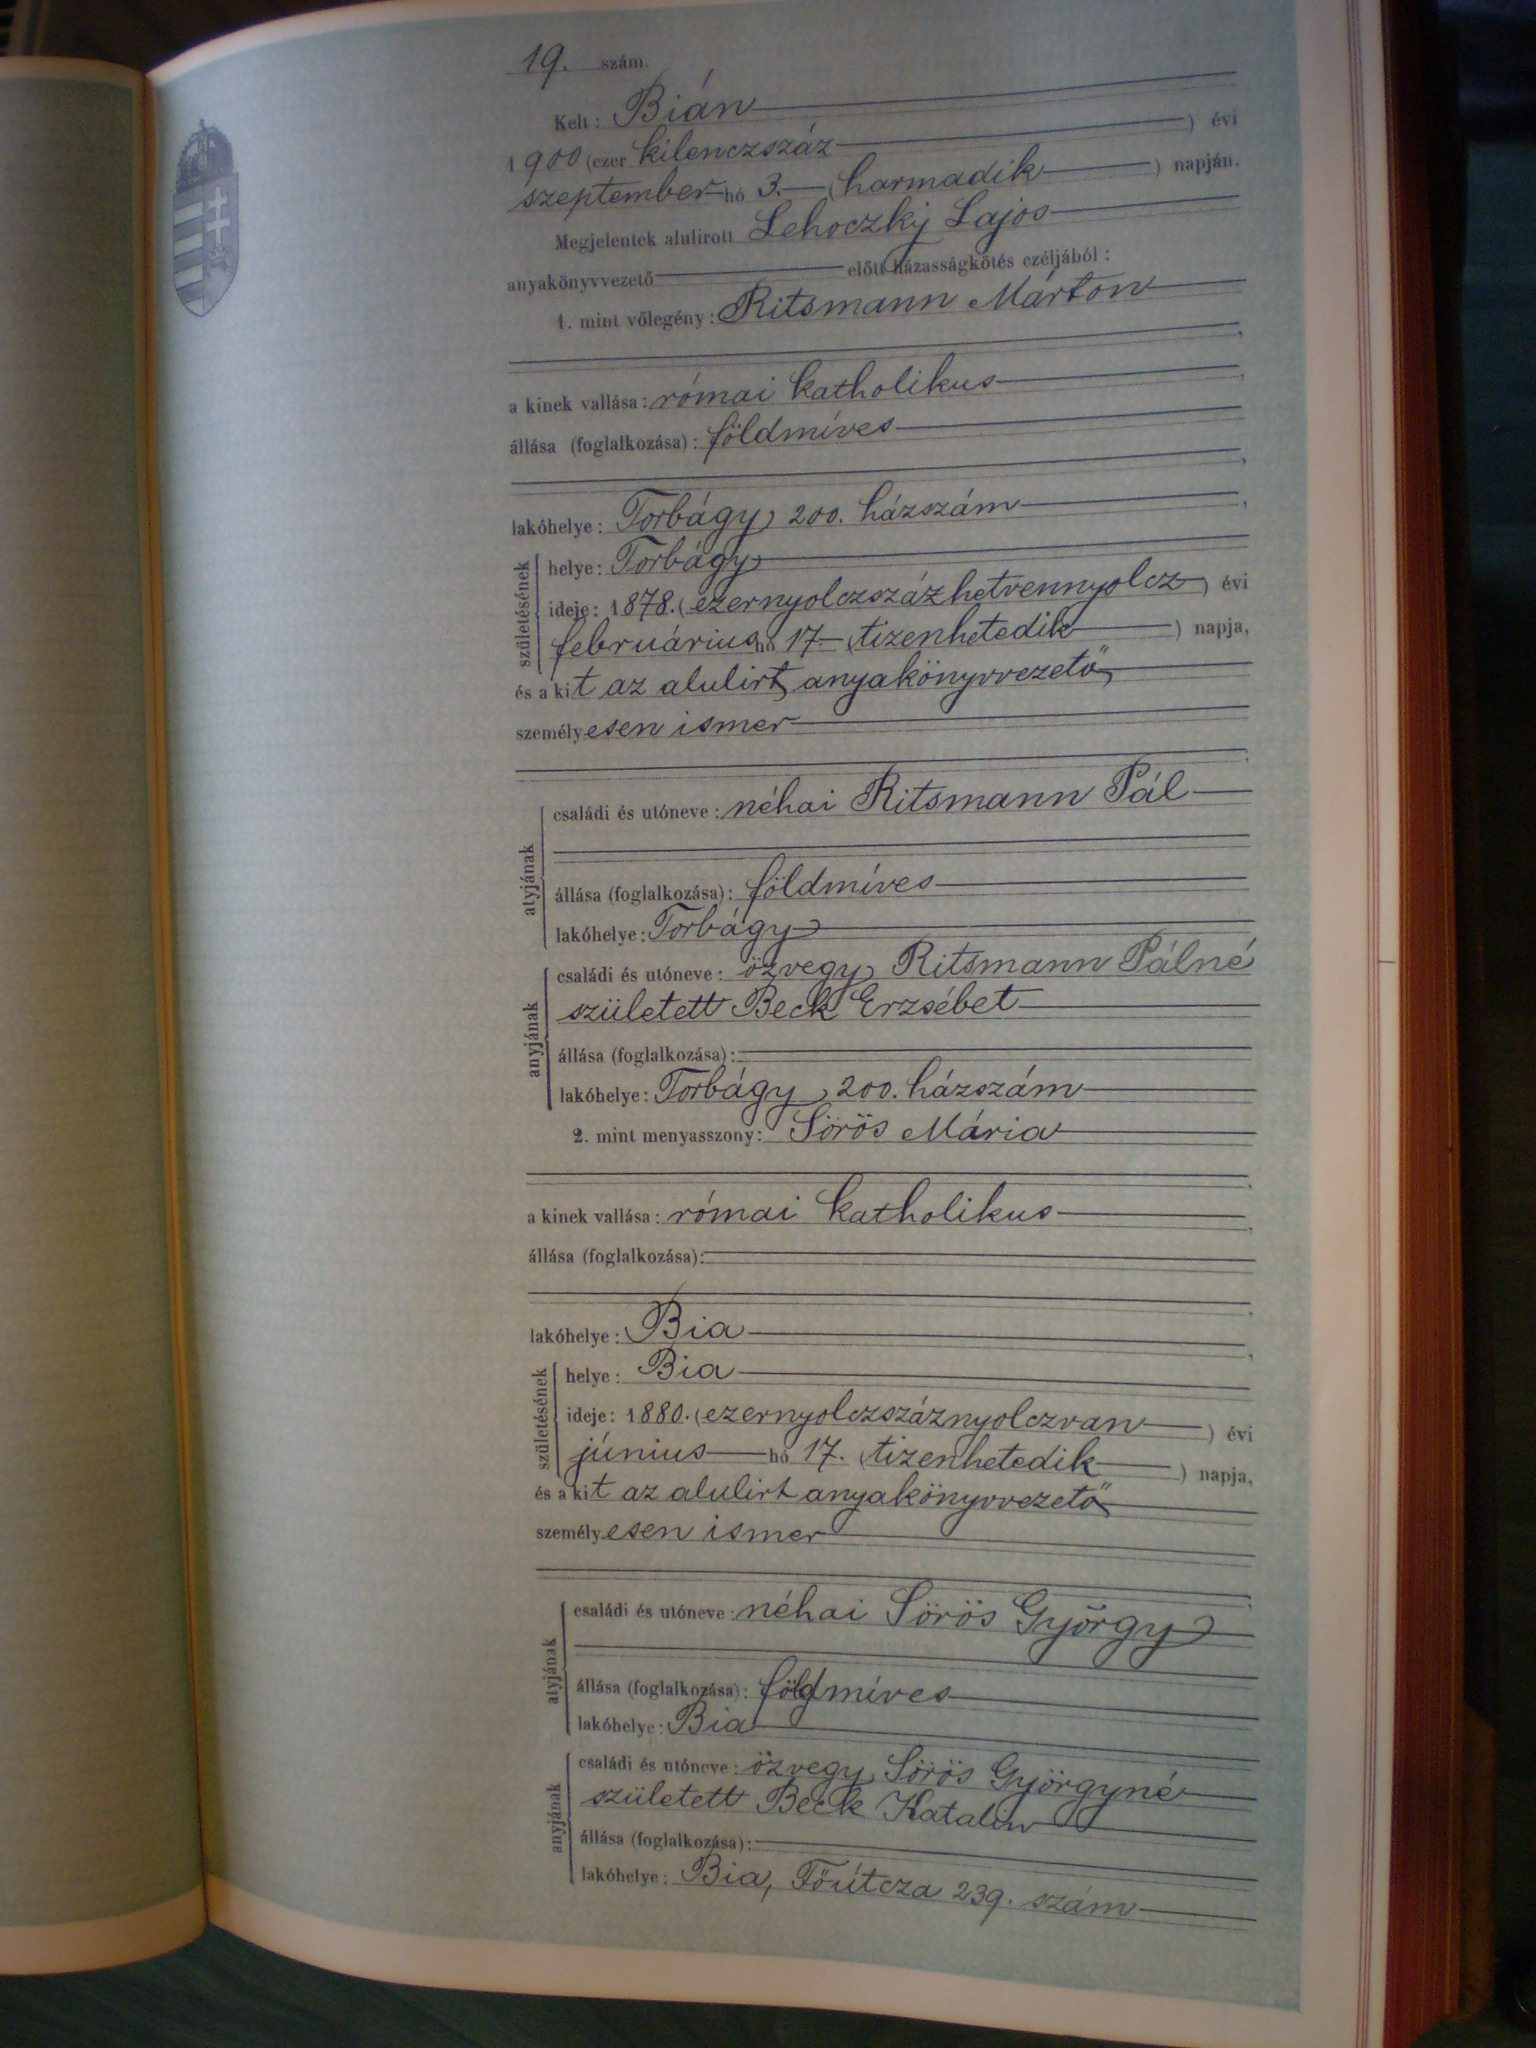 19. szám.
Kelt: Bián
1900 (ezer kilenczszáz) évi
szeptember hó 3. (harmadik) napján.
Megjelentek alulirott Lehoczky Lajos
anyakönyvvezető előtt házasságkötés czéljából:
1. mint vőlegény: Ritsmann Márton
a kinek vallása: római katholikus,
állása (foglalkozása): földmíves,
lakóhelye: Torbágy, 200. házszám,
születésének
helye: Torbágy
ideje: 1878. (ezernyolczszázhetvennyolcz) évi
februárius hó 17. (tizenhetedik) napja,
és a kit az alulirt anyakönyvvezető
személyesen ismer,
atyjának
családi és utóneve: néhai Ritsmann Pál
állása (foglalkozása): földmíves
lakóhelye: Torbágy
anyjának
családi és utóneve: özvegy Ritsmann Pálné
született Beck Erzsébet
állása (foglalkozása):
lakóhelye: Torbágy, 200. házszám
2. mint menyasszony: Sörös Mária,
a kinek vallása: római katholikus,
állása (foglalkozása):,
lakóhelye: Bia,
születésének
helye: Bia
ideje: 1880. (ezernyolczszáznyolczvan) évi
június hó 17. (tizenhetedik) napja,
és a kit az alulirt anyakönyvvezető
személyesen ismer,
atyjának
családi és utóneve: néhai Sörös György
állása (foglalkozása): földmíves
lakóhelye: Bia
anyjának
családi és utóneve: özvegy Sörös Györgyné
született Beck Katalin
állása (foglalkozása):
lakóhelye: Bia, Főútcza 239. szám